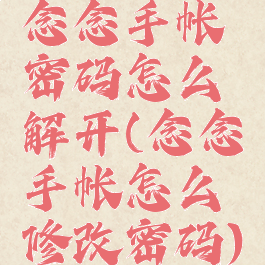 念念手帐
密码怎么
解开(念念
手帐怎么
修改密码)